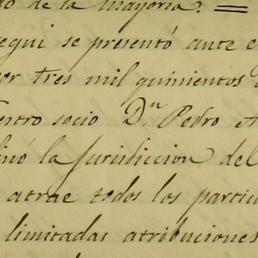 o de la mayoria. =
egui se presentó ante e
or tres mil quinientos
entro socio Dⁿ Pedro A
ino la Jurisdiccion del
atrae todos los particu
limitadas atribuciones